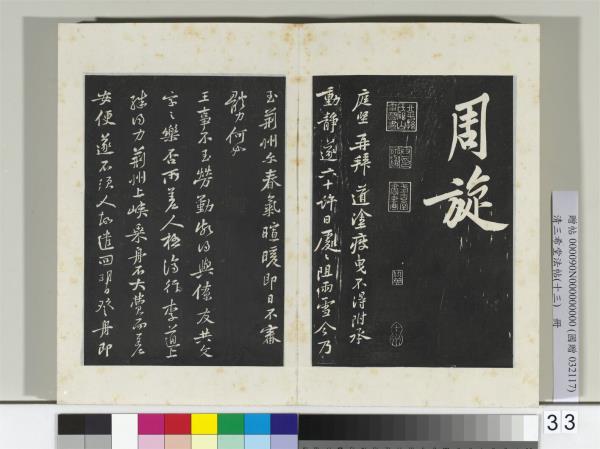 周旋
庭堅再拜道塗疲曳不得附承
動靜遂六十許日處處阻雨雪今乃
至荊州分春氣暄暖即日不審
體力何如
王事不至勞勤頗得與僚友共文
字之樂否所差人極濟行李道上
殊得力荊州上峽乘舟不大費而差
安便遂不須人故遣回明日登舟即
贈帖 000090N000000000 (國贈 032117)
清三希堂法帖(十三) 冊
33